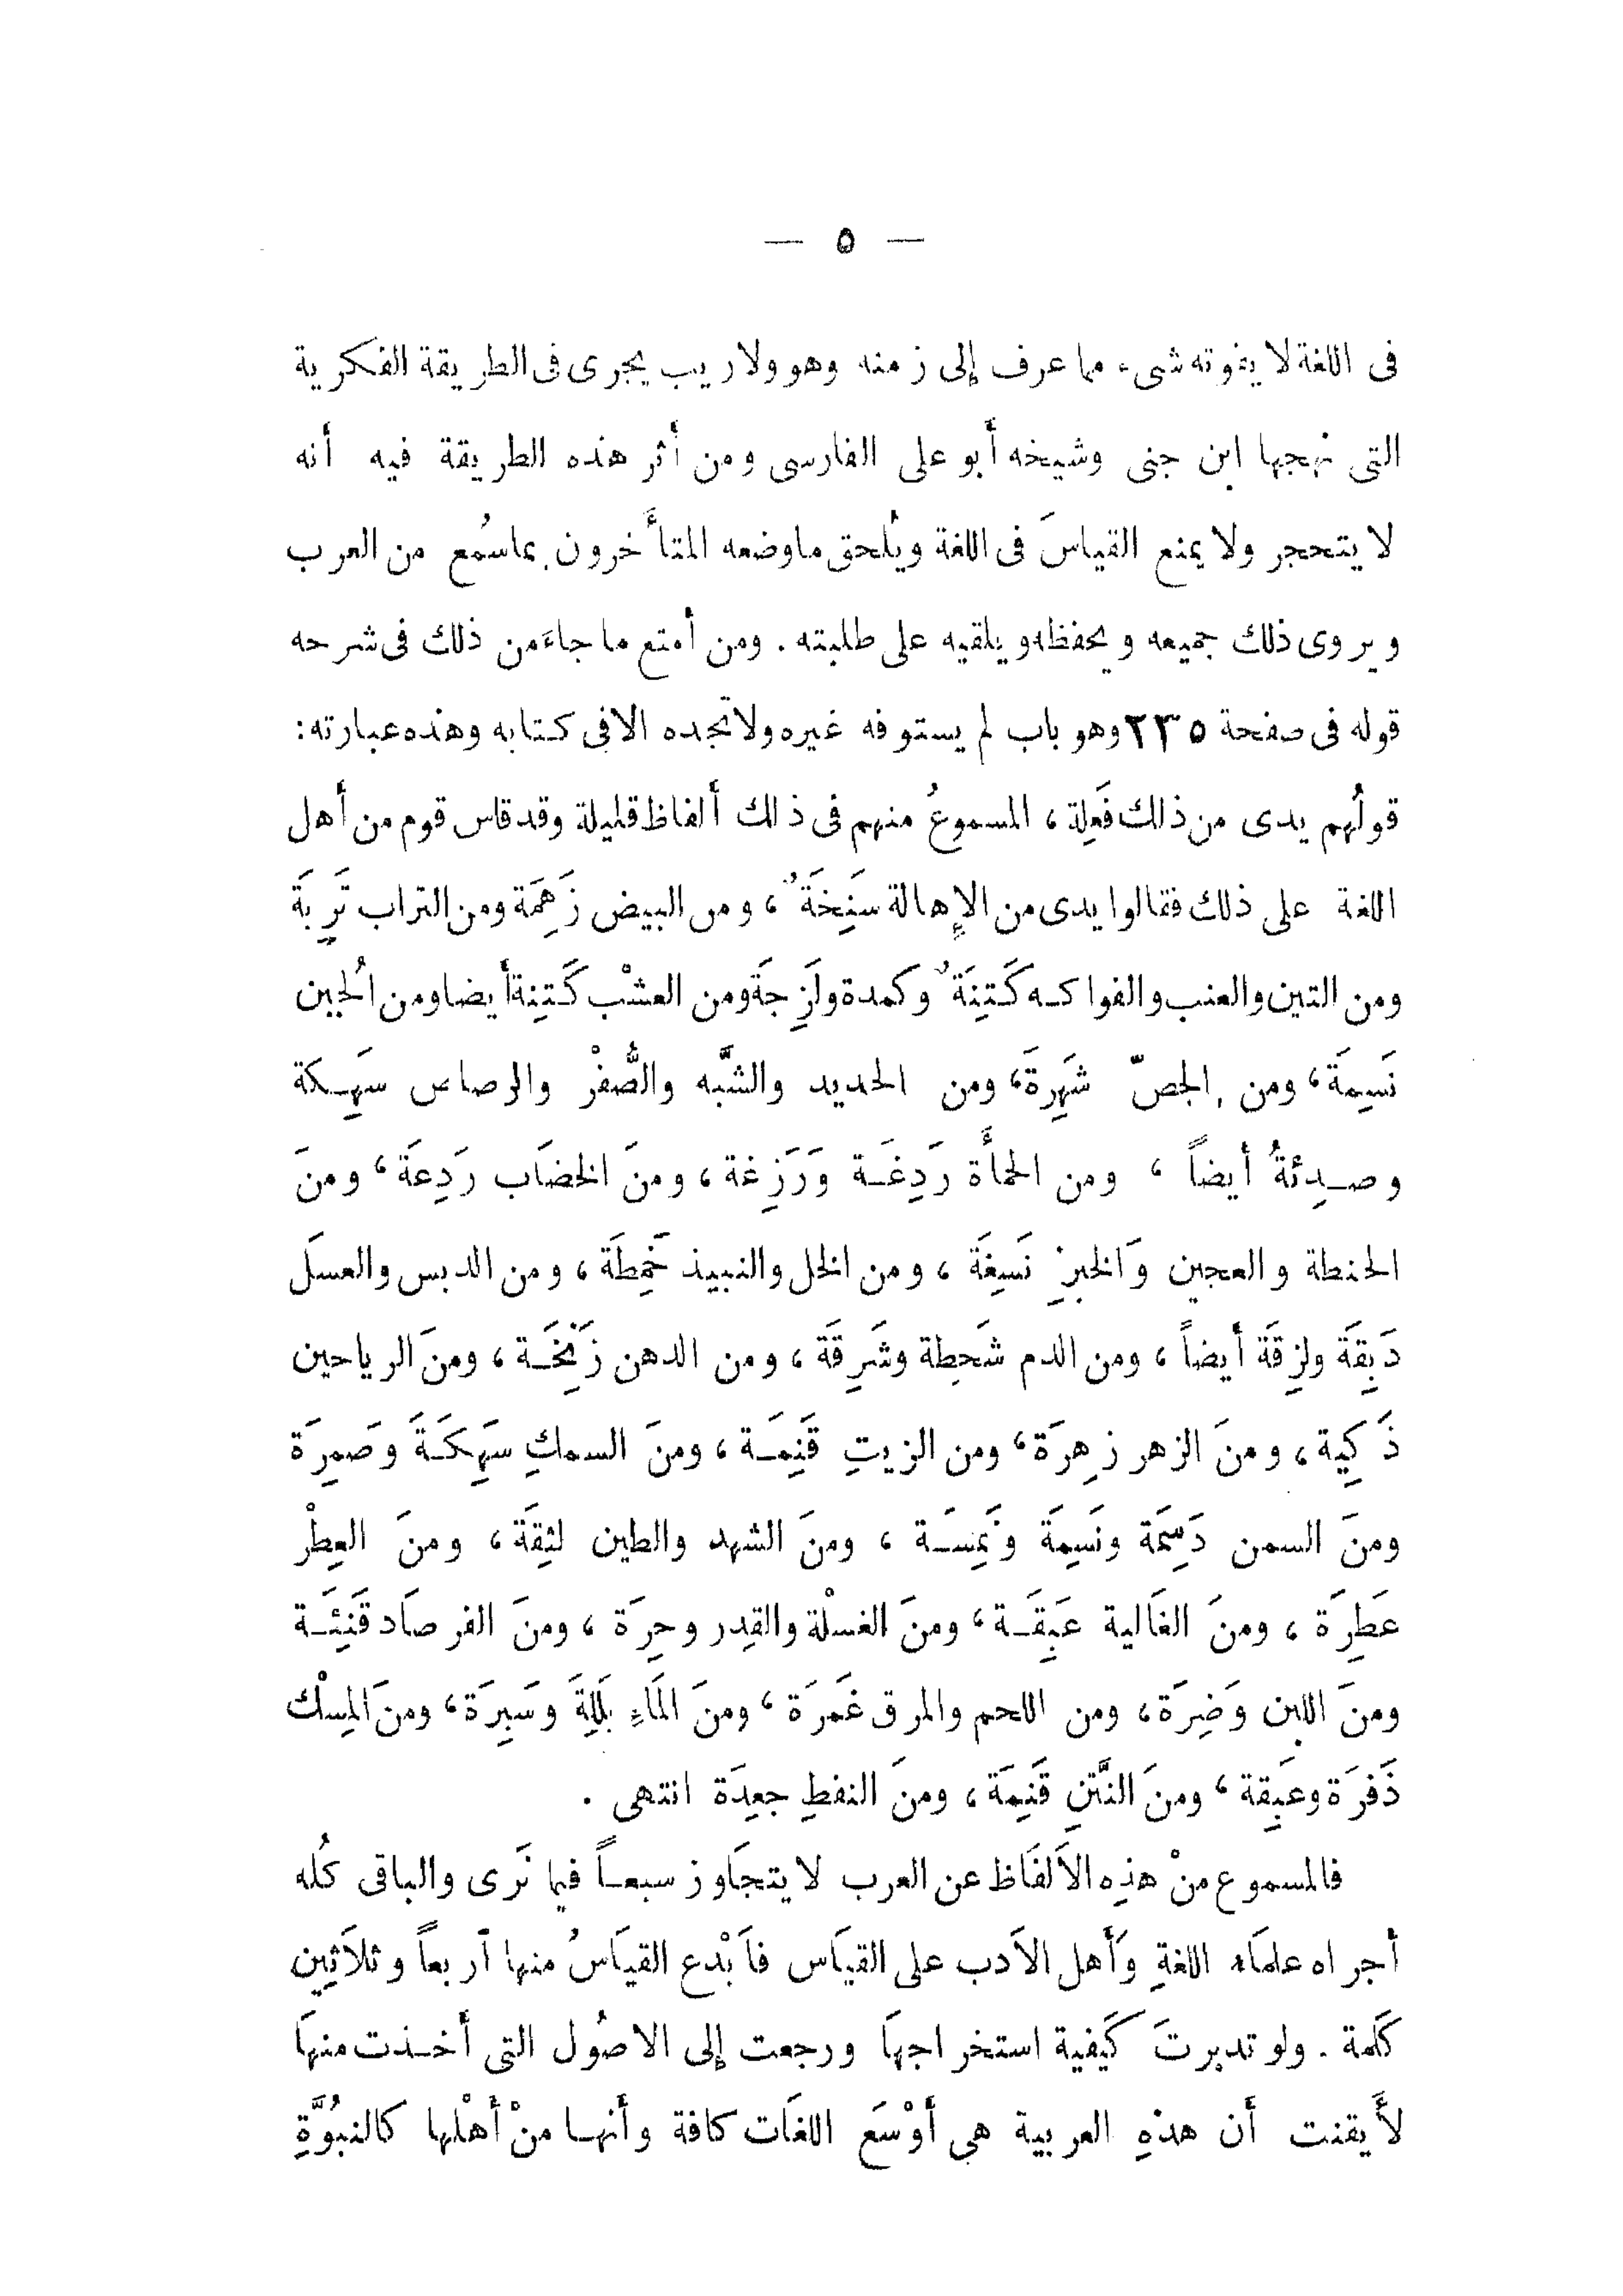 — ٥ —
فى اللغة لا يفوته شىء مما عرف إلى زمنه وهو ولا ريب يجرى فى الطريقة الفكرية
التى نهجها ابن جنى وشيخه أبو على الفارسى ومن أثر هذه الطريقة فيه أنه
لا يتحجر ولا يمنع القياسَ فى اللغة ويُلحق ما وضعه المتأخرون بما سُمع من العرب
ويروى ذلك جميعه ويحفظه ويلقيه على طلبته . ومن أمتع ما جاءَ من ذلك فى شرحه
قوله فى صفحة ٢٣٥ وهو باب لم يستوفه غيره ولا تجده الا فى كتابه وهذه عبارته :
قولُهم يدى من ذلك فَعِلة ، المسموعُ منهم فى ذلك ألفاظ قليلة وقد قاس قوم من أهل
اللغة على ذلك فقالوا يدى من الإهالة سَنِخَةٌ ، ومن البيض زَهِمَة ومن التراب تَرِبَة
ومن التين والعنب والفواكه كَتِنَةٌ وكمدة ولَزِجَة ومن العشْب كَتِنة أيضا ومن الُجبن
نَسِمَة ، ومن الجصّ شَهِرَة ، ومن الحديد والشَّبه والصُّفْر والرصاص سَهِكة
وصدِئةُ أيضاً ، ومن الحمأة رَدِغَة وَرَزِغة ، ومنَ الخضَاب رَدِعَة ، ومنَ
الحنطة والعجين وَالخبزِ نَسِغَة ، ومن الخل والنبيذ خَمِطَة ، ومن الدبس والعسَل
دَبِقَة ولزِقَة أيضاً ، ومن الدم شَحِطة وشَرِقَة ، ومن الدهن زَنِخَة ، ومنَ الرياحين
ذَكِية ، ومنَ الزهر زهِرَة ، ومن الزيتِ قَنِمَة ، ومنَ السمكِ سَهِكَةَ وَصَمِرَة
ومنَ السمن دَسِمَة ونَسِمَة ونَمِسَة ، ومنَ الشهد والطين لثِقَة ، ومنَ العِطْر
عَطِرَة ، ومنَ الغَالية عَبِقَة ، ومنَ الغسْلة والقِدر وحِرَة ، ومنَ الفرصَاد قَنِئَة
ومنَ اللبن وَضِرَة ، ومن اللحم والمرق غَمَرَة ، ومنَ المَاءِ بَلِلَةَ وَسَبِرَة ، ومنَ المِسْك
ذَفَرَة وعَبِقة ، ومنَ النَّتنِ قَنِمَة ، ومنَ النفطِ جعِدَة انتهى .
فالمسموع منْ هذِه الاَلفَاظ عن العرب لا يتجَاوز سبعاً فيما نَرى والباقى كُله
أجراه علمَاء اللغةِ وَأَهل الاَدب على القيَاس فاَبْدع القيَاسُ منها أربعاً وثلاَثِين
كَلمة . ولو تدبرتَ كَيفية استخراجهَا ورجعت إلى الاصُول التى أخذت منهَا
لأَيقنت أن هذهِ العربية هى أوْسَع اللغَات كافة وأنها منْ أهْلها كالنبُوَّةِ